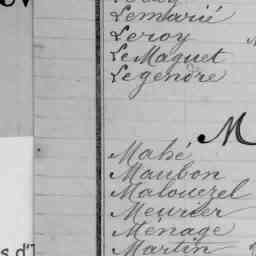 Lemarié
Leroy
Le Maguet
Legendre
M
Mahé
Maubon
Malouezel
Meurier
Ménage
Martin
s d'